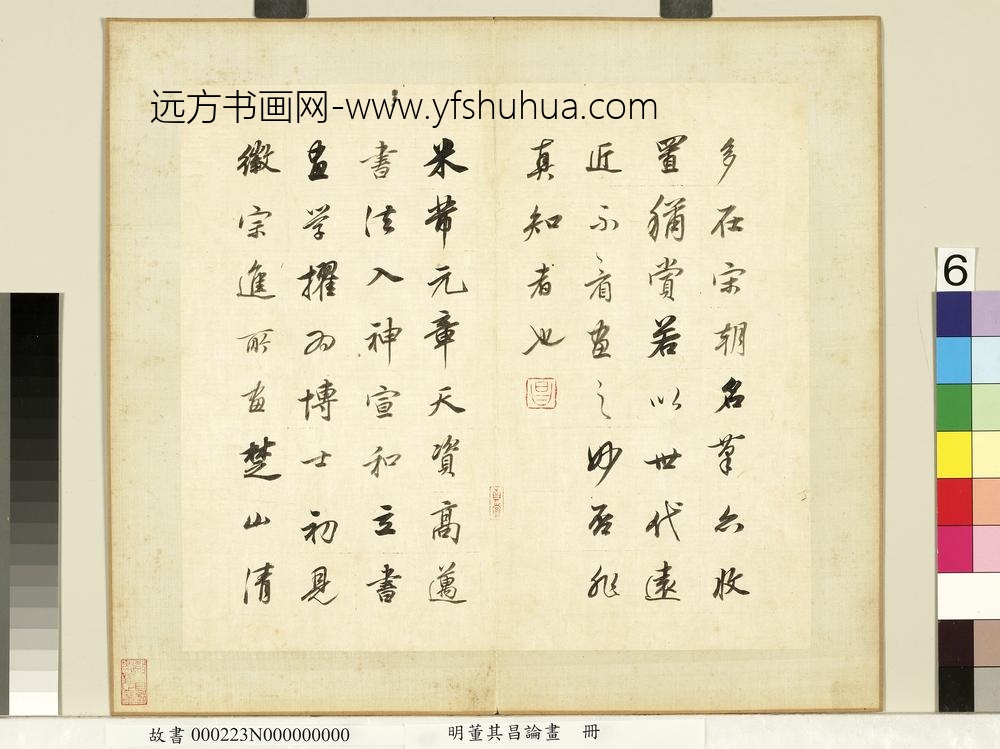 远方书画网-www.yfshuhua.com
多在宋朝名筆亦收
置獨賞若以世代遠
近不看畫之妙否非
真知者也
昌
米芾元章天資高邁
書法入神宣和立書
畫学擢為博士初見
徽宗進所畫楚山清
6
故書 000223N000000000
明董其昌論畫 冊